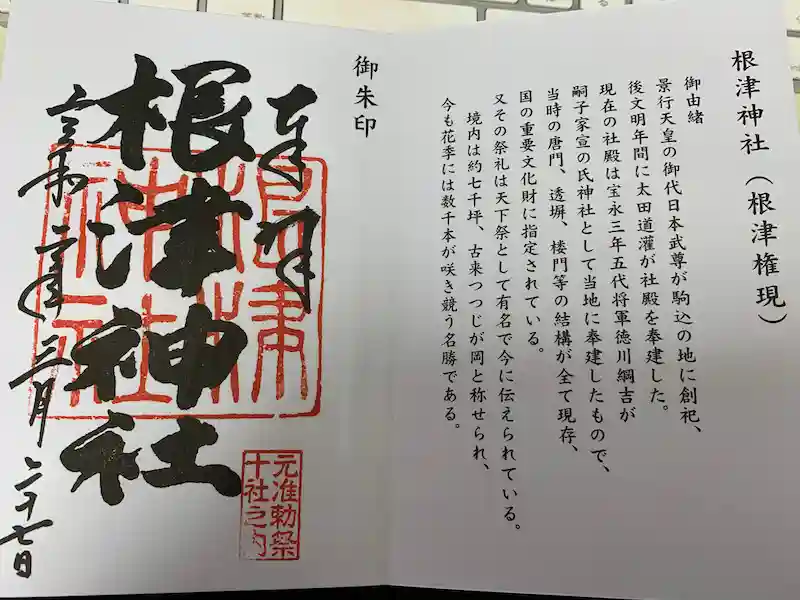 根津神社（根津権現）
御由緒
景行天皇の御代日本武尊が駒込の地に創祀、
後文明年間に太田道灌が社殿を奉建した。
現在の社殿は宝永三年五代将軍徳川綱吉が
嗣子家宣の氏神社として当地に奉建したもので、
当時の唐門、透塀、楼門等の結構が全て現存、
国の重要文化財に指定されている。
又その祭礼は天下祭として有名で今に伝えられている。
境内は約七千坪、古来つつじが岡と称せられ、
今も花季には数千本が咲き競う名勝である。
御朱印
奉拝
根津神社
令和二年三月二十七日
根津
神社
元准勅祭
十社之内